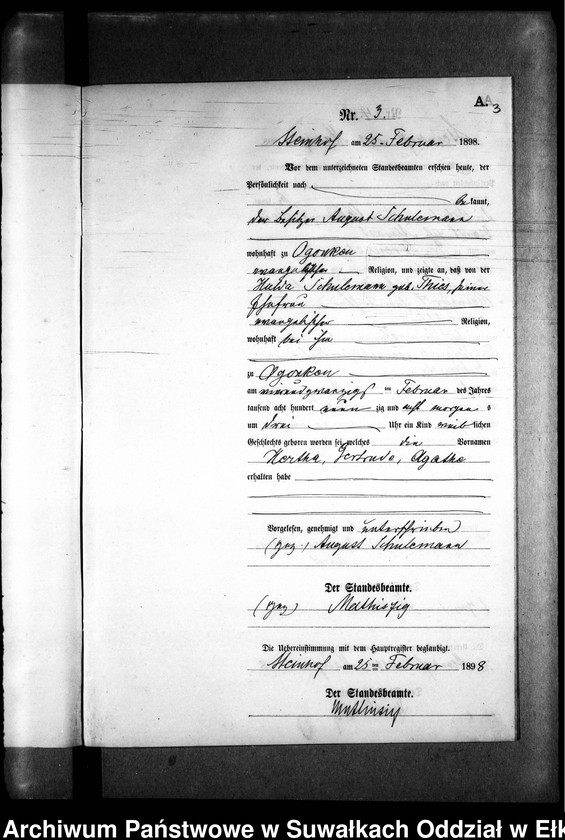 A. 3
Nr. 3.
Steinhof am 25. Februar 1898.
Vor dem unterzeichneten Standesbeamten erschien heute, der
Persönlichkeit nach
be kannt,
der Besitzer August Schulemann
wohnhaft zu Ogonken
evangelischer Religion, und zeigte an, daß von der
Hulda Schulemann geb. Thies, seiner
Ehefrau
evangelischer Religion,
wohnhaft bei ihm
zu Ogonken
am vierundzwanzigs ten Februar des Jahres
tausend acht hundert neun zig und acht morgens
um drei Uhr ein Kind weib lichen
Geschlechts geboren worden sei, welches die Vornamen
Hertha, Gertrude, Agathe
erhalten habe
Vorgelesen, genehmigt und unterschrieben
(gez.) August Schulemann
Der Standesbeamte.
(gez) Mathiszig
Die Uebereinstimmung mit dem Hauptregister beglaubigt.
Steinhof am 25 ten Februar 1898
Der Standesbeamte.
Mathiszig
Archiwum Państwowe w Suwałkach Oddział w Ełk